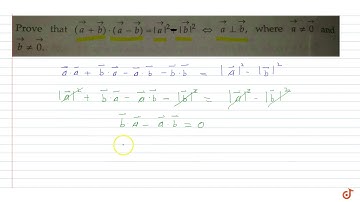 Prove that (a⃗ + b⃗) · (a⃗ + b⃗) = |a⃗|² + |b⃗|² ⇔ a⃗ ⊥ b⃗, where a⃗ ≠ 0⃗ and
b⃗ ≠ 0⃗.
a⃗ a⃗ + b⃗ · a⃗ − a⃗ · b⃗ − b⃗ · b⃗ = |a⃗|² − |b⃗|²
|a⃗|² + b⃗ a⃗ − a⃗ · b⃗ − |b⃗|² = |a⃗|² − |b⃗|²
b⃗ a⃗ − a⃗ · b⃗ = 0